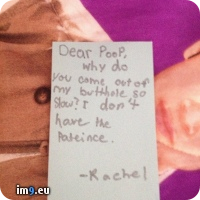 Dear Poop,
why do
you come out of
my butthole so
slow? I don't
have the
pateince.
-Rachel
im9.eu